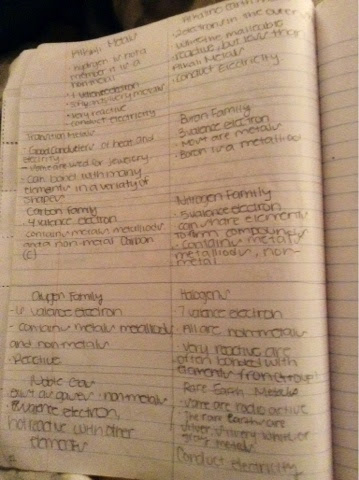 Alkali Metals
hydrogen is not a
member it is a
non metal
1 valence electron
Shiny very metals
very reactive
conduct electricity
Transition Metals
Good Conductors of heat and
Some are used for jewelry
Can bond with many
elements in a variety of
shapes
Carbon Family
4 valence electron
contains metals metalloids
and a non-metal Carbon
(C)
Oxygen Family
6 valence electron
- contains metals metalloids
and non-metals
- Reactive
Noble Gas
gases non metals
8 valence electron,
not reactive with other
elements
Alkaline earth
2 electrons in the outer
malleable
reactive, but less than
Alkali Metals
conduct Electricity
Boron Family
3 valence electron
Most are metals
Boron is a metalloid
Nitrogen Family
5 valence electron
can share elements
to form compounds
Contains metals
metalloids, non-
metal
Halogens
7 valence electron
All are non-metals
Very reactive are
often bonded with
elements from Group 1
Rare Earth Metals
Some are radioactive
The rare Earths are
silver, silvery white or
gray metals
Conduct electricity